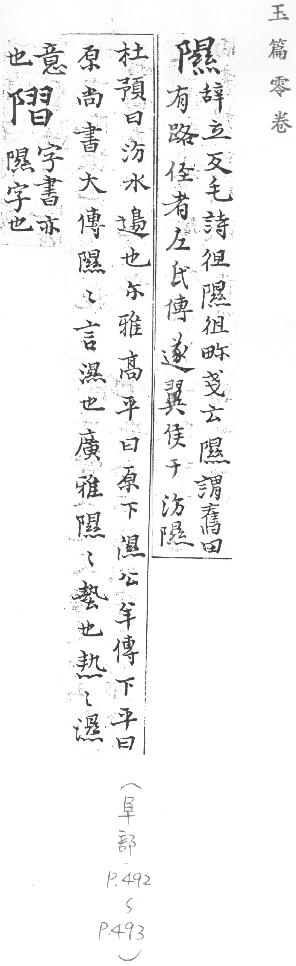 玉篇零卷
隰辞立反毛詩徂隰徂畛戔云隰謂舊田
有路侄者左氏傳遂翼侯于汾隰
杜預曰汾水邉也尓雅髙平曰原下濕公羊傳下平曰
原尚書大傳隰〻言濕也廣雅隰〻蟄也熱〻濕
意字書亦
也隰字也
（阜部.
P.492
~
P.493）